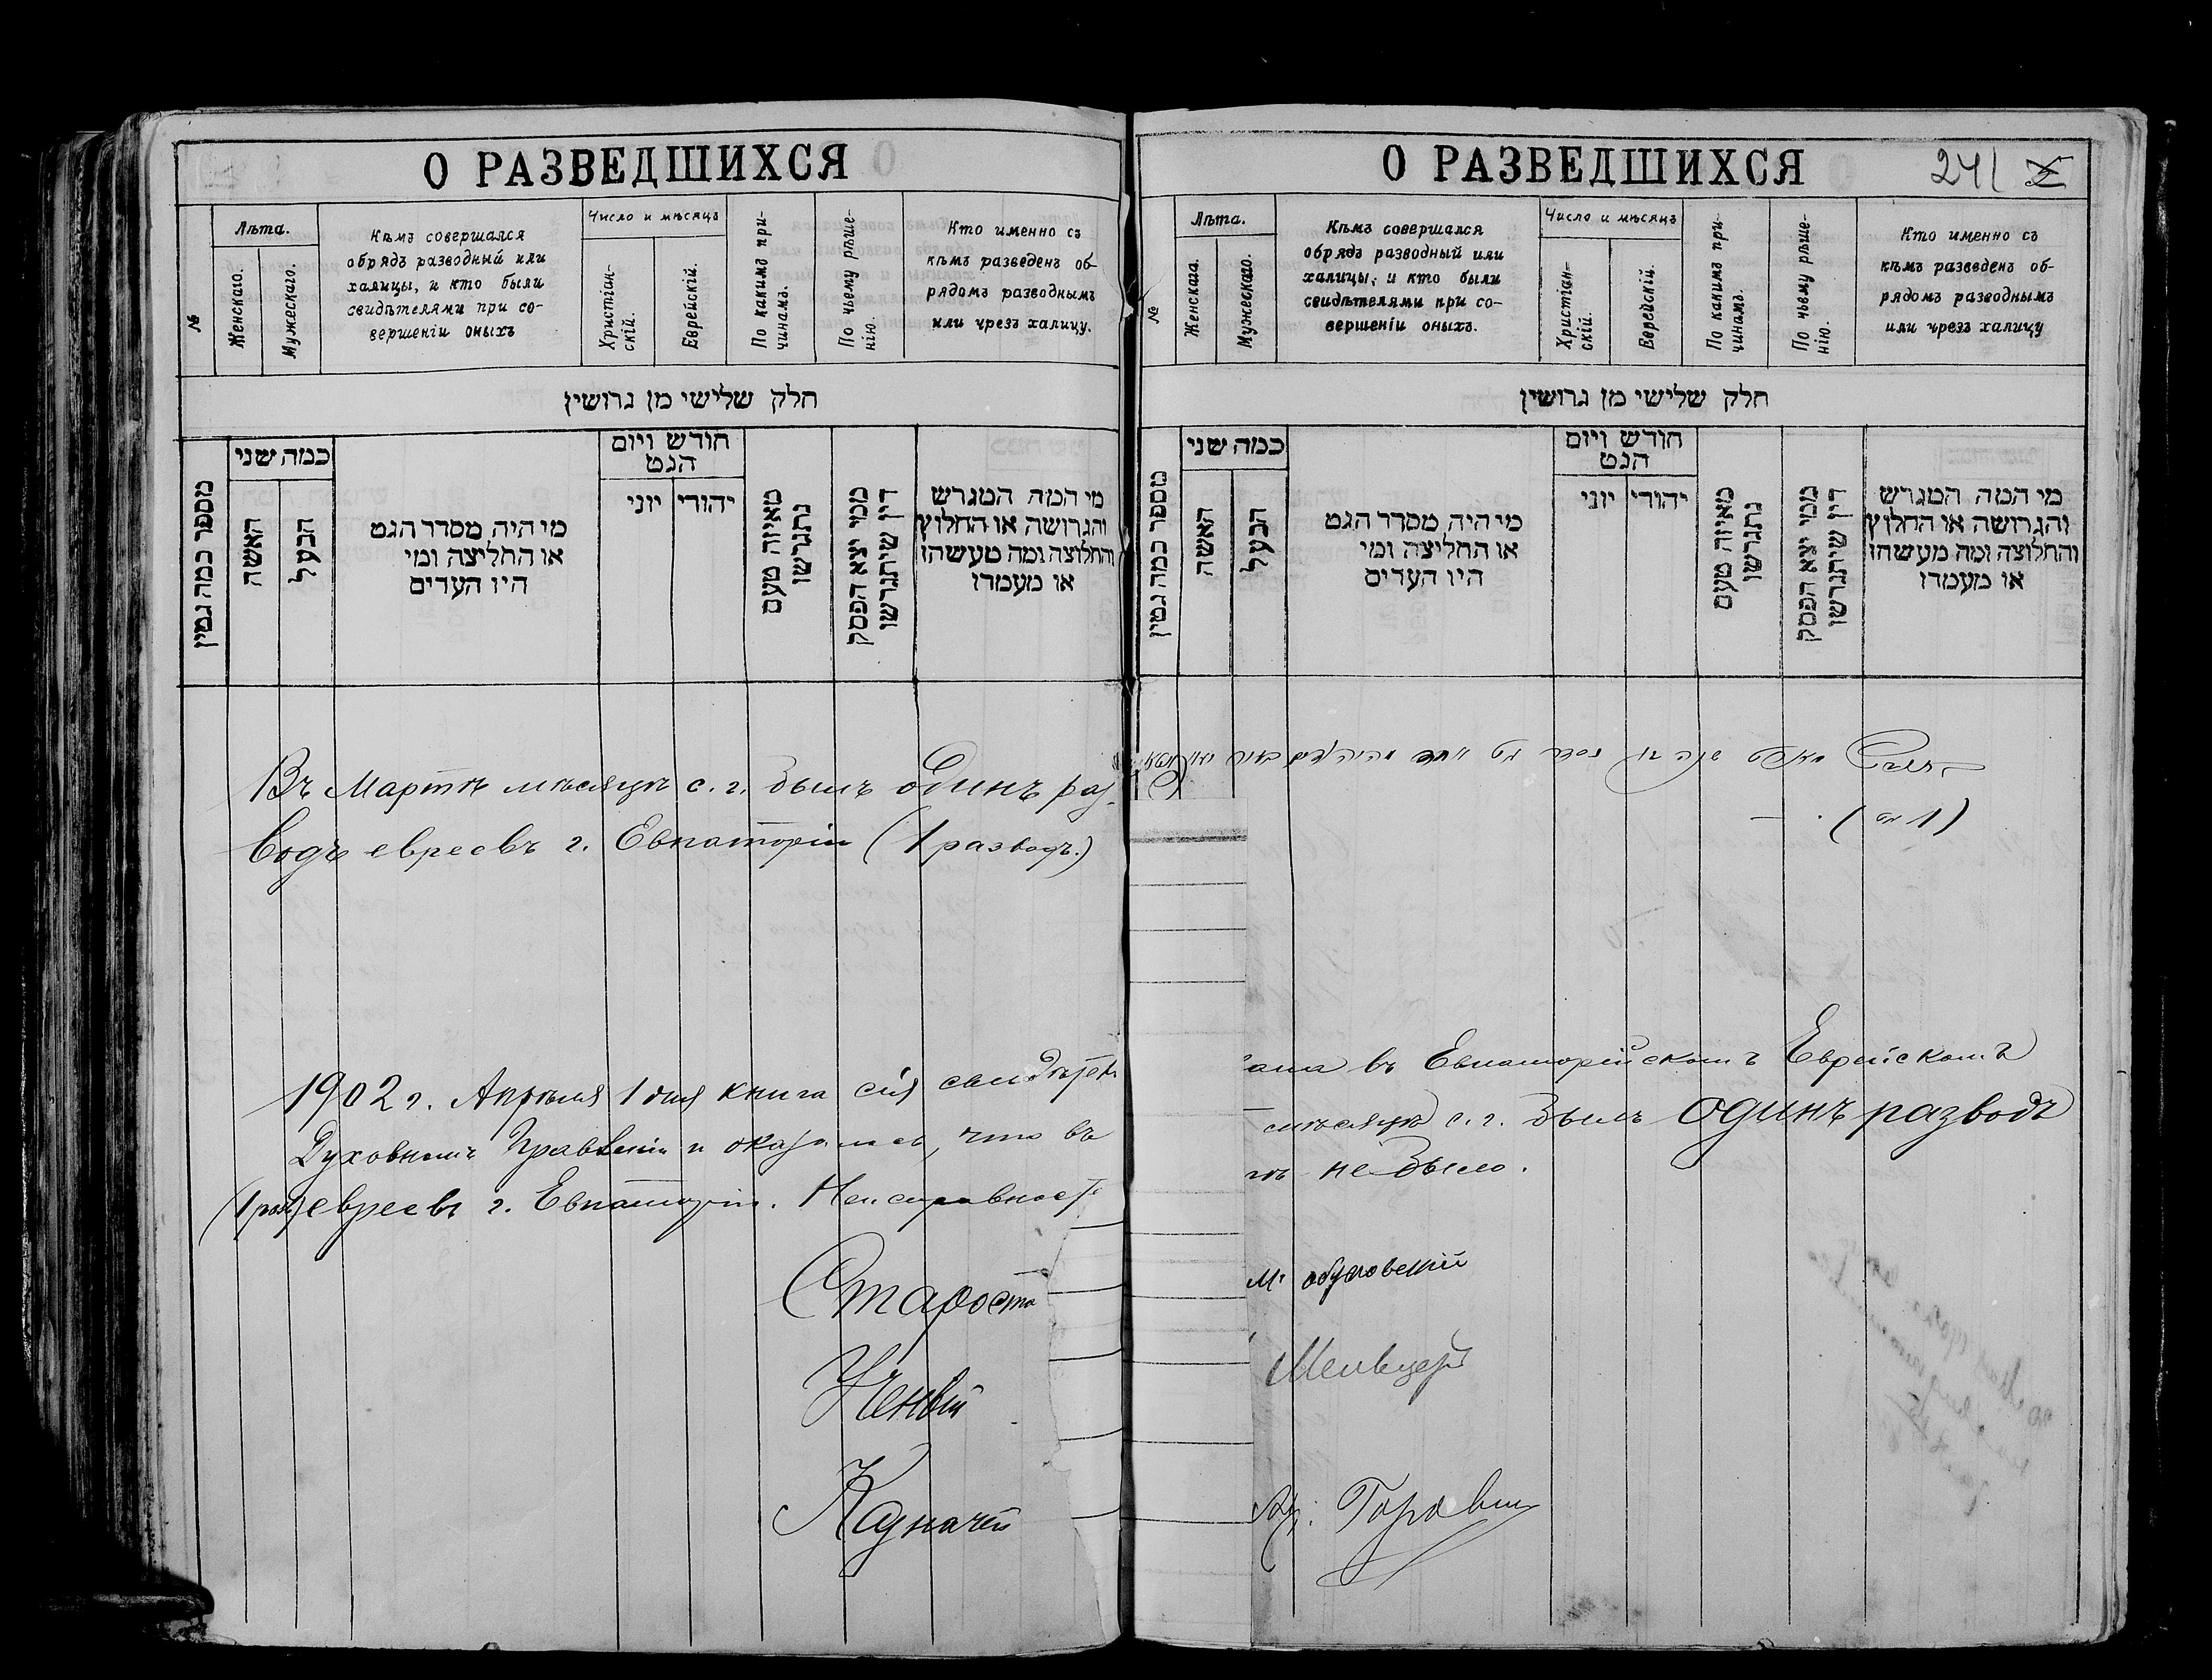 О РАЗВЕДШИХСЯ
№
Лѣта.
Женскаго.
Мужескаго.
Кѣмъ совершался
обрядъ разводный или
халицы, и кто были
свидѣтелями при со-
вершеніи оныхъ
Число и мѣсяцъ
Христіан-
скій.
Еврейскій.
По какимъ при-
чинамъ.
По чьему рѣше-
нію.
Кто именно съ
кѣмъ разведенъ об-
рядомъ разводнымъ
или чрезъ халицу.
חלק שלישי מן גרושין
מספר כמה גטין
כמה שני
האשה
הבעל
מי היה מסדר הגט
או החליצה ומי
היו העדים
חודש ויום
הגט
יוני
יהודי
מאיזה טעם
נתגרשו
ממי יצא הפסק
דין שיתגרשו
מי המה המגרש
והגרושה או החלוץ
והחלוצה ומה מעשהו
או מעמדו
Въ Мартѣ мѣсяцѣ с. г. былъ одинъ раз-
водъ евреевъ г. Евпаторіи (1 разводъ.)
1902 г. Апрѣля 1 дня книга сія свидѣтел
Духовномъ Правленіи и оказалось, что въ
(1 раз) евреевъ г. Евпаторіи. Неисправност
Староста
Ученый
Казначей
О РАЗВЕДШИХСЯ
241
№
Лѣта.
Женскаго.
Мужескаго.
Кѣмъ совершался
обрядъ разводный или
халицы, и кто были
свидѣтелями при со-
вершеніи оныхъ.
Число и мѣсяцъ
Христіан-
скій.
Еврейскій.
По какимъ при-
чинамъ.
По чьему рѣше-
нію.
Кто именно съ
кѣмъ разведенъ об-
рядомъ разводнымъ
или чрезъ халицу
חלק שלישי מן גרושין
מספר כמה גטין
כמה שני
האשה
הבעל
מי היה מסדר הגט
או החליצה ומי
היו העדים
חודש ויום
הגט
יוני
יהודי
מאיזה טעם
נתגרשו
ממי יצא הפסק
דין שיתגרשו
מי המה המגרש
והגרושה או החלוץ
והחלוצה ומה מעשהו
או מעמדו
ана въ Евпаторійскомъ Еврейскомъ
мѣсяцѣ с. г. былъ одинъ разводъ
не было.
М.
Горовиц